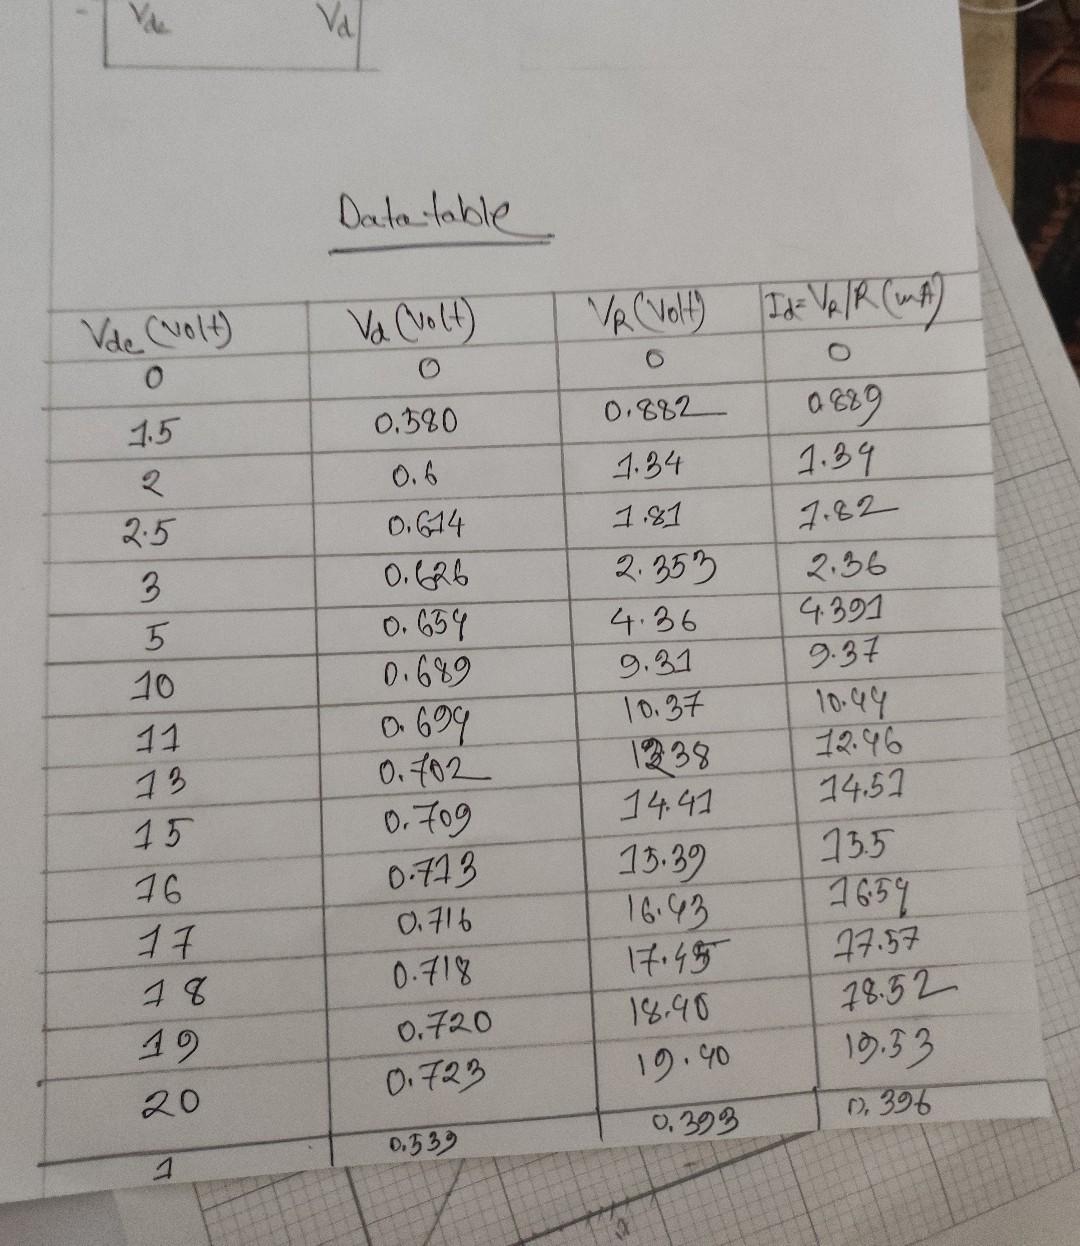 Vdc Vd
Data table
Vdc (volt) Vd (volt) VR (volt) Id = VR/R (mA)
0 0 0 0
1.5 0.580 0.882 0.889
2 0.6 1.34 1.34
2.5 0.614 1.81 1.82
3 0.626 2.353 2.36
5 0.654 4.36 4.391
10 0.689 9.31 9.37
11 0.694 10.37 10.44
13 0.702 12.38 12.46
15 0.709 14.41 14.51
16 0.713 15.39 15.5
17 0.716 16.43 16.54
18 0.718 17.45 17.57
19 0.720 18.40 18.52
20 0.723 19.40 19.53
1 0.539 0.393 0.396